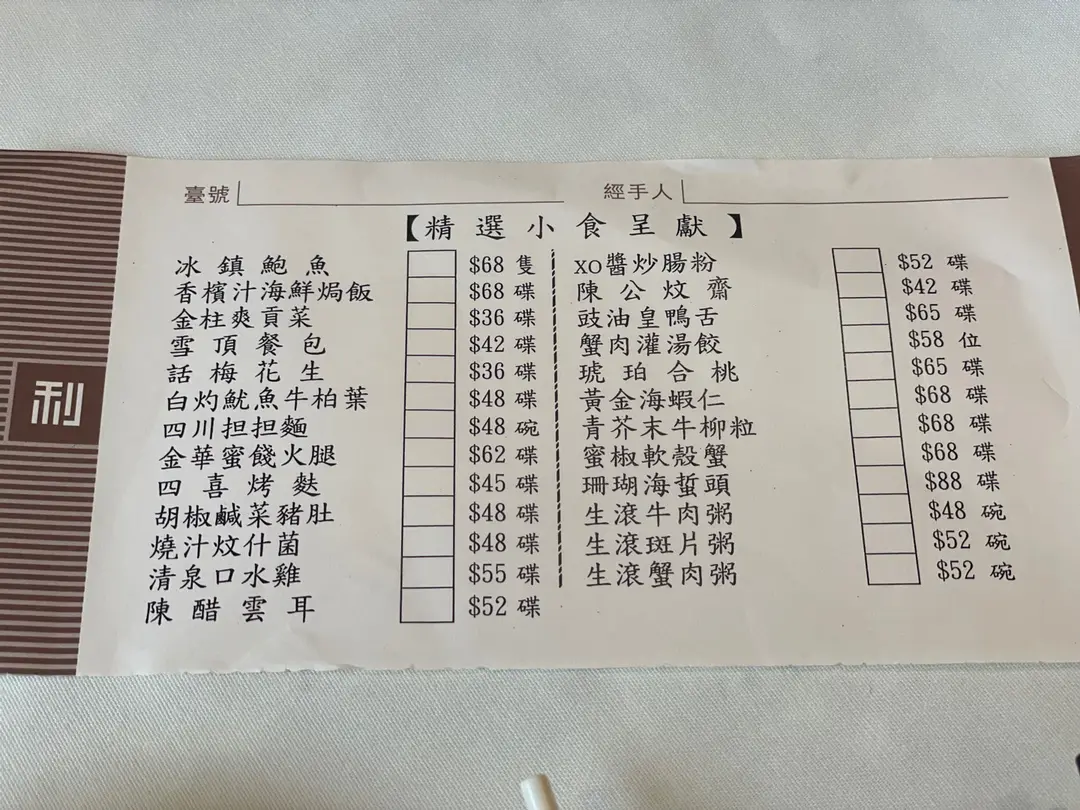 臺號 經手人
【精選小食呈獻】
冰鎮鮑魚 $68 隻
香檳汁海鮮焗飯 $68 碟
金柱爽貢菜 $36 碟
雪頂餐包 $42 碟
話梅花生 $36 碟
白灼魷魚牛柏葉 $48 碟
四川担担麵 $48 碗
金華蜜餞火腿 $62 碟
四喜烤麩 $45 碟
胡椒鹹菜豬肚 $48 碟
燒汁炆什菌 $48 碟
清泉口水雞 $55 碟
陳醋雲耳 $52 碟
XO醬炒腸粉 $52 碟
陳公炆齋 $42 碟
豉油皇鴨舌 $65 碟
蟹肉灌湯餃 $58 位
琥珀合桃 $65 碟
黃金海蝦仁 $68 碟
青芥末牛柳粒 $68 碟
蜜椒軟殼蟹 $68 碟
珊瑚海蜇頭 $88 碟
生滾牛肉粥 $48 碗
生滾斑片粥 $52 碗
生滾蟹肉粥 $52 碗
利